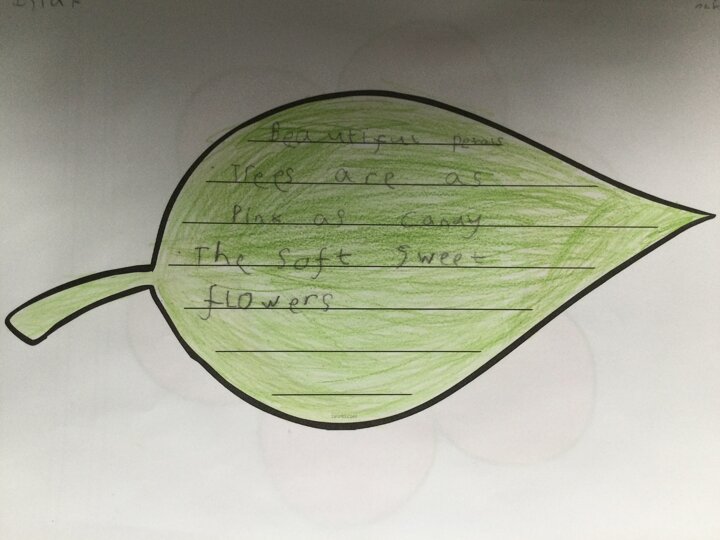 Beautiful
Trees are as
Pink as candy
The Soft Sweet
flowers